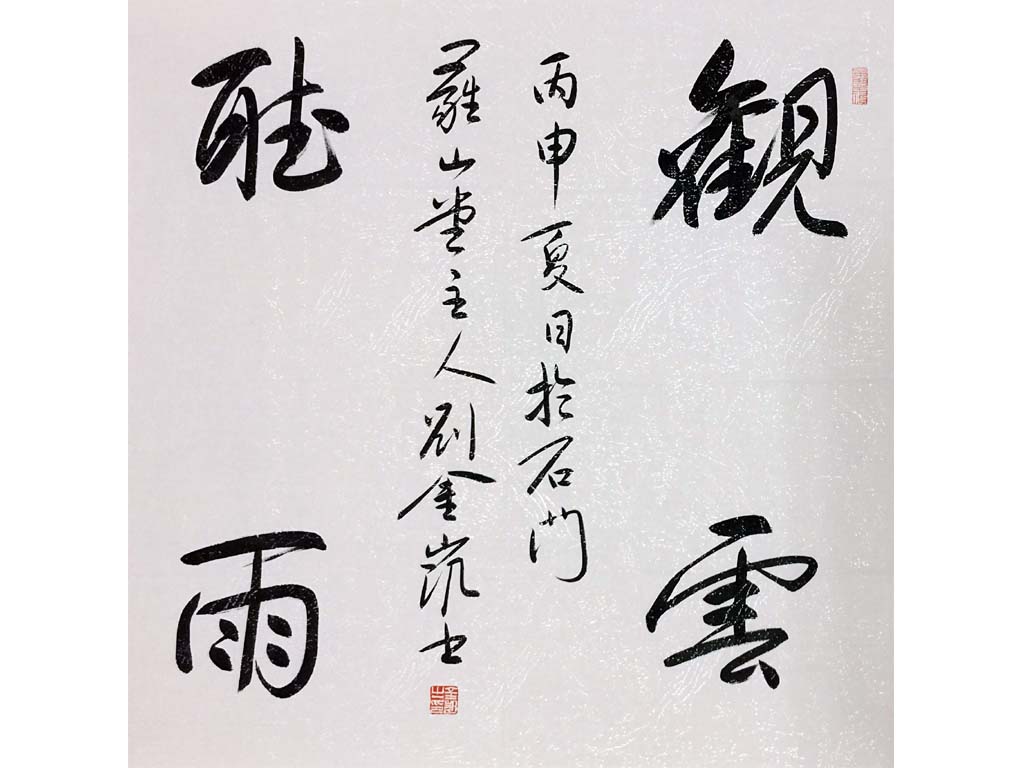 觀雲
聽雨
丙申夏日於石門
羅山堂主人劉金凱書